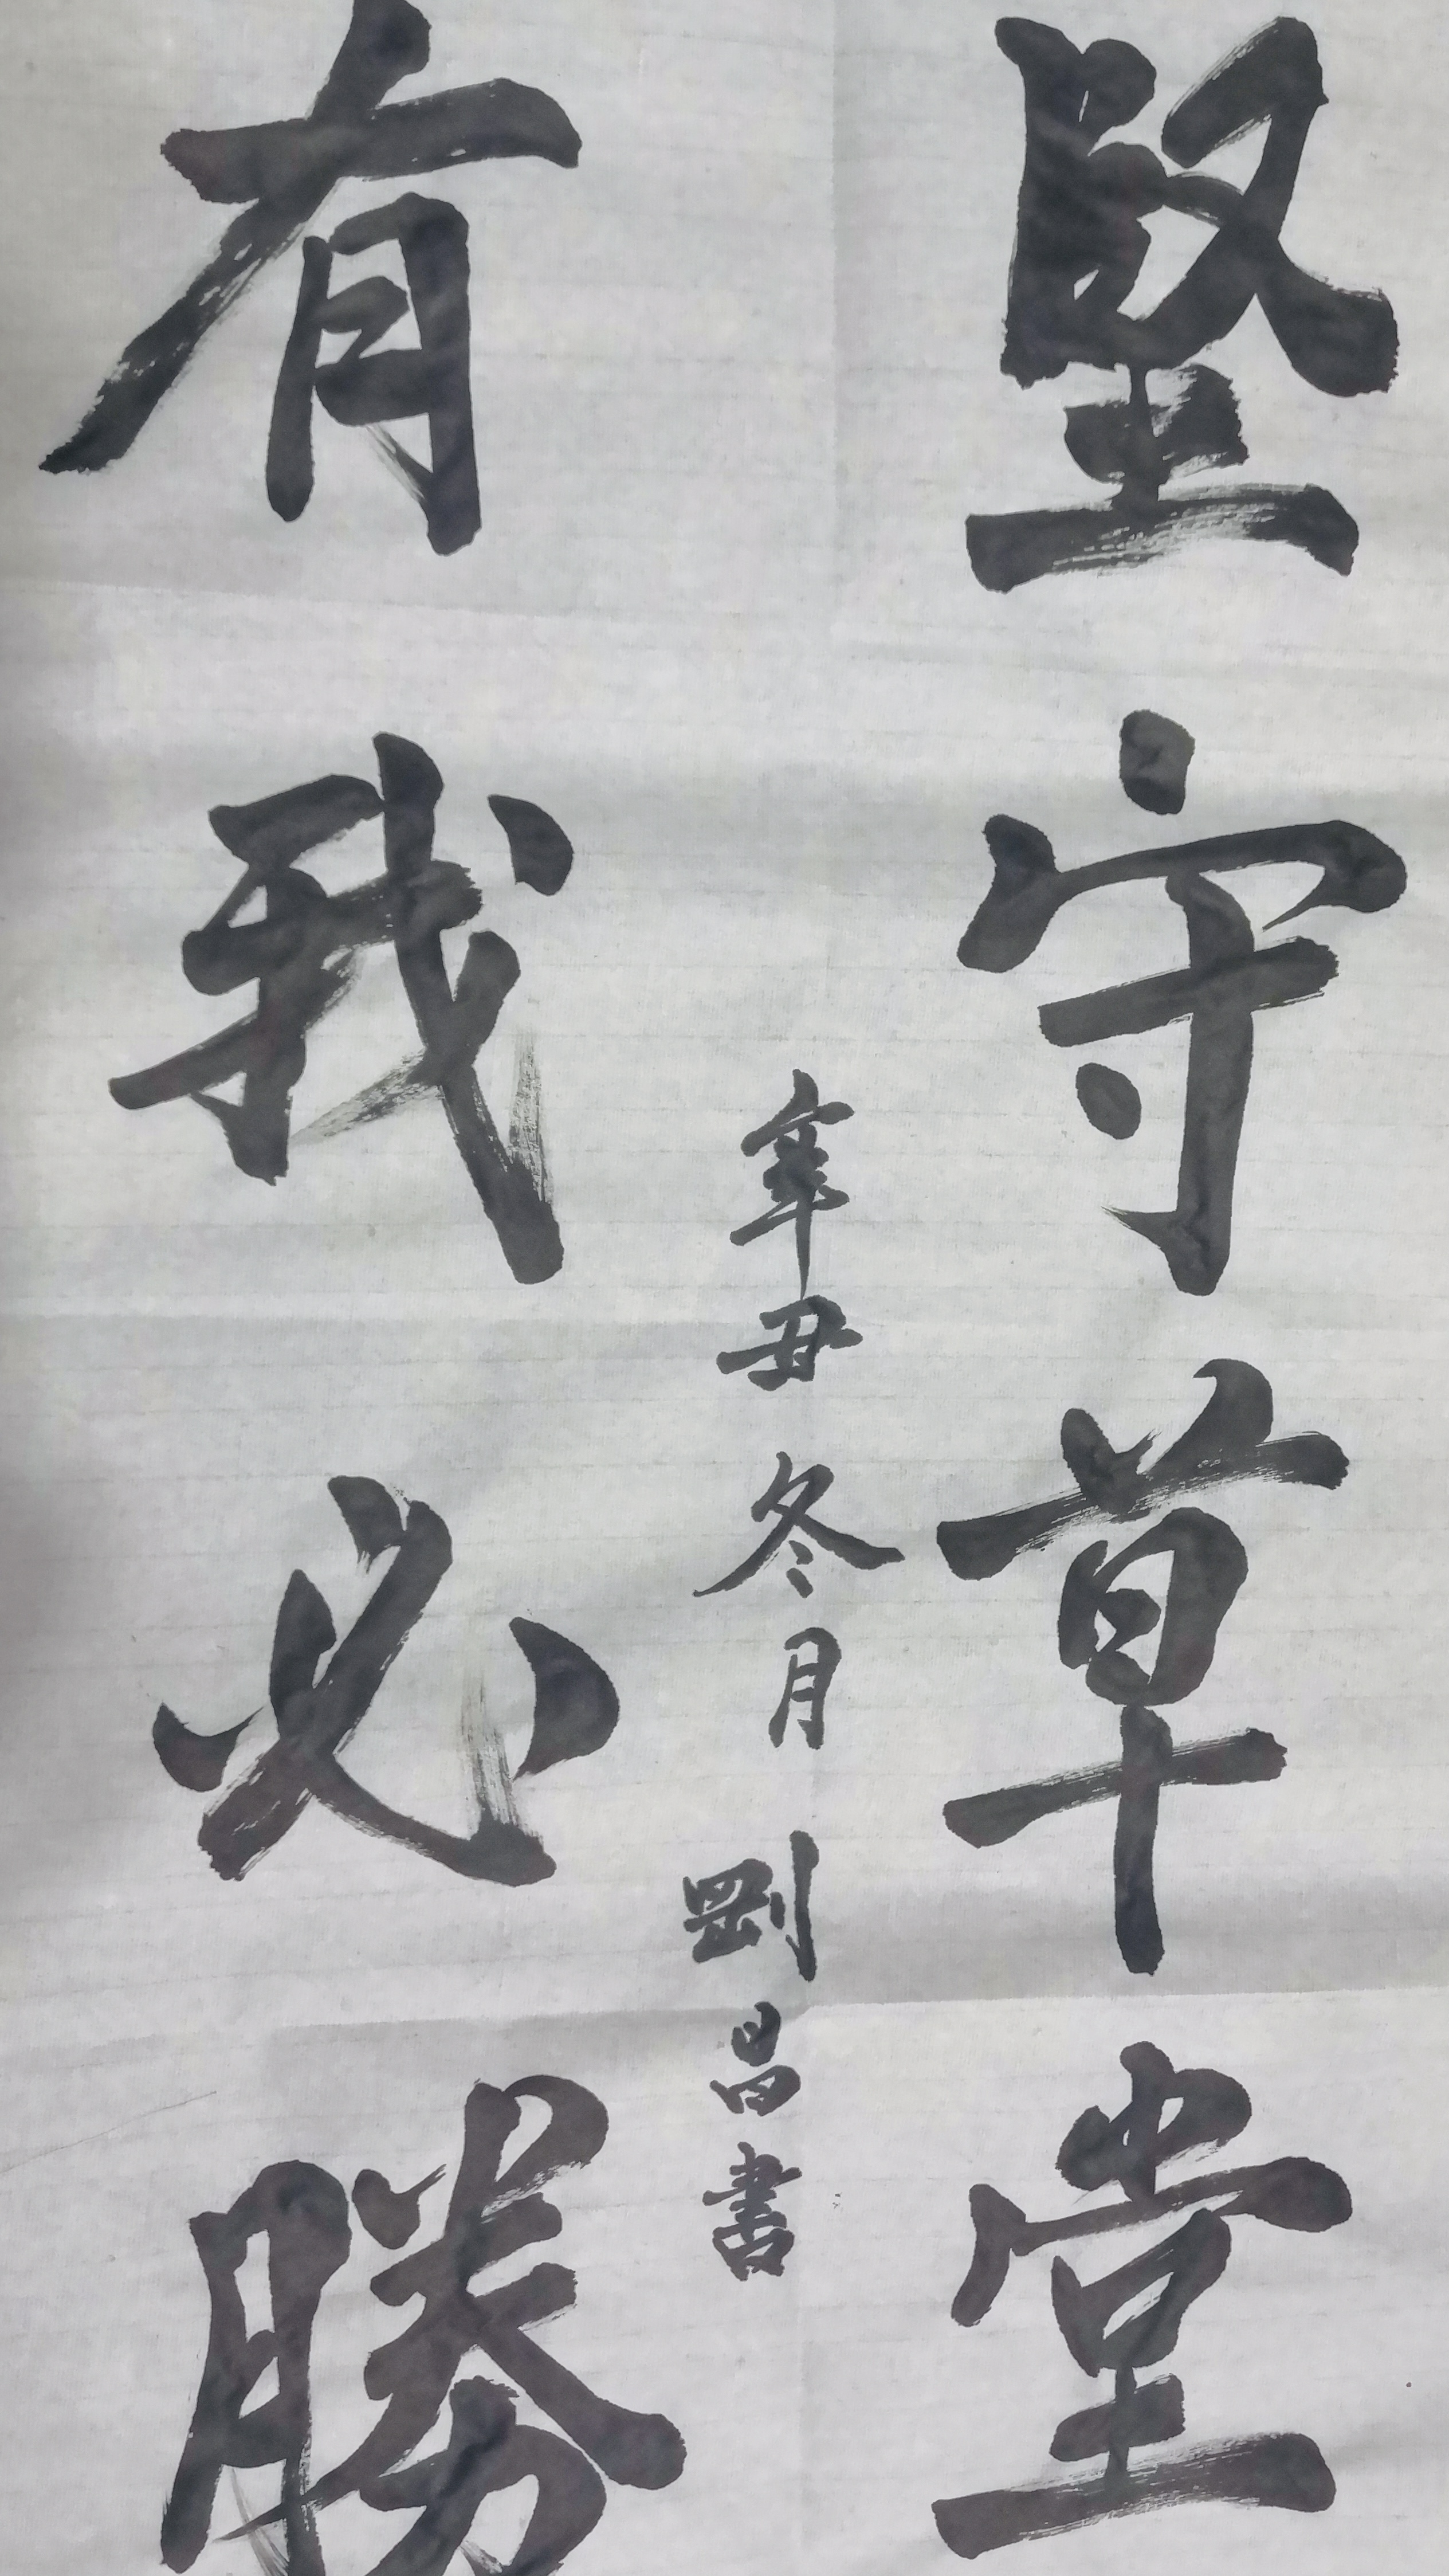 堅守草堂
有我必勝
辛丑冬月劉昌書